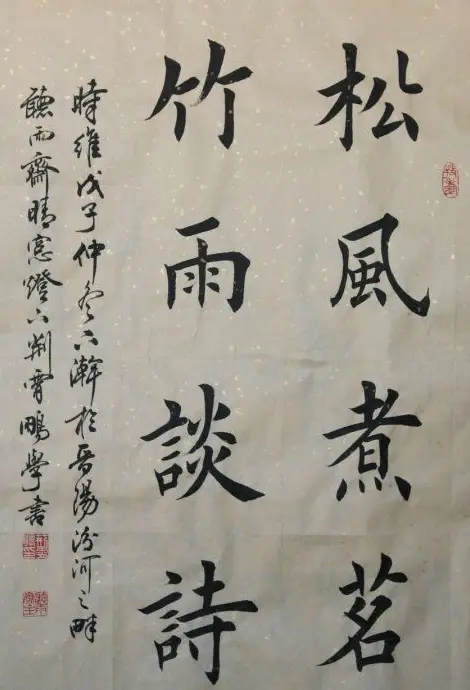 松風煮茗
竹雨談詩
時維戊子仲冬下澣於晉陽汾河之畔
聽雨齋晴窓燈下荊霄鵬學書